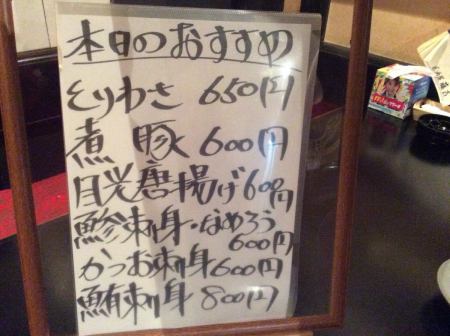 本日のおすすめ
とりわさ 650円
煮豚 600円
目光唐揚げ 600円
鯵刺身・なめろう
600円
かつお刺身 600円
鮪刺身 800円